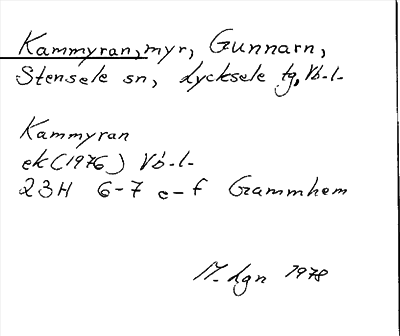 Kammyran, myr, Gunnarn,
Stensele sn, Lycksele tg, Vb-l-
Kammyran
ek (1976) Vb-l-
23H 6-7 e-f Grammhem
M-Lgn 1978